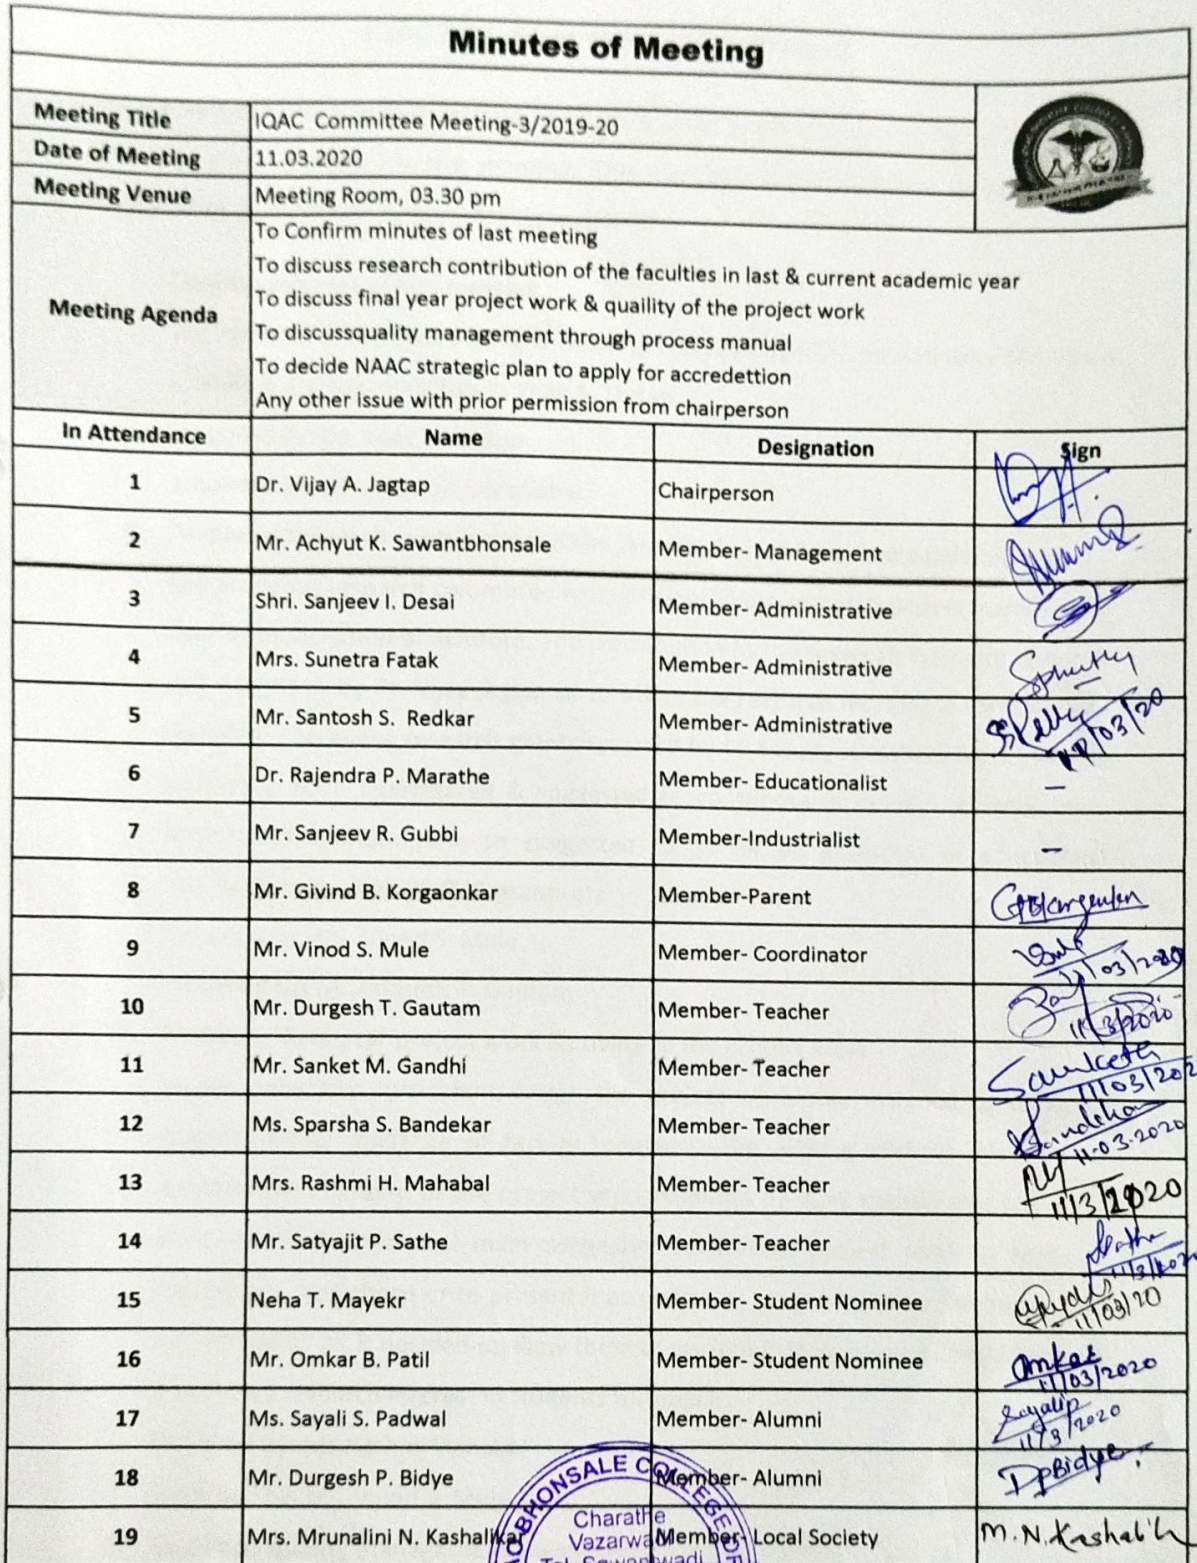 Minutes of Meeting
Meeting Title IQAC Committee Meeting-3/2019-20
Date of Meeting 11.03.2020
Meeting Venue Meeting Room, 03.30 pm
Meeting Agenda
To Confirm minutes of last meeting
To discuss research contribution of the faculties in last & current academic year
To discuss final year project work & quaility of the project work
To discussquality management through process manual
To decide NAAC strategic plan to apply for accredettion
Any other issue with prior permission from chairperson
In Attendance Name Designation Sign
1 Dr. Vijay A. Jagtap Chairperson
2 Mr. Achyut K. Sawantbhonsale Member- Management
3 Shri. Sanjeev I. Desai Member- Administrative
4 Mrs. Sunetra Fatak Member- Administrative
5 Mr. Santosh S. Redkar Member- Administrative 11/03/20
6 Dr. Rajendra P. Marathe Member- Educationalist –
7 Mr. Sanjeev R. Gubbi Member-Industrialist –
8 Mr. Givind B. Korgaonkar Member-Parent GBKorgaonkar
9 Mr. Vinod S. Mule Member- Coordinator 11/03/2020
10 Mr. Durgesh T. Gautam Member- Teacher 11/3/2020
11 Mr. Sanket M. Gandhi Member- Teacher 11/03/202
12 Ms. Sparsha S. Bandekar Member- Teacher Bandekar 11-03-2020
13 Mrs. Rashmi H. Mahabal Member- Teacher 11/3/2020
14 Mr. Satyajit P. Sathe Member- Teacher Sathe 11/3/2020
15 Neha T. Mayekr Member- Student Nominee 11/03/20
16 Mr. Omkar B. Patil Member- Student Nominee Omkar 11/03/2020
17 Ms. Sayali S. Padwal Member- Alumni Sayalip 11/3/2020
18 Mr. Durgesh P. Bidye Member- Alumni DPBidye
19 Mrs. Mrunalini N. Kashalikar Member- Local Society M.N.Kashalik
BHONSALE COLLEGE OF
Charathe
Vazarwa